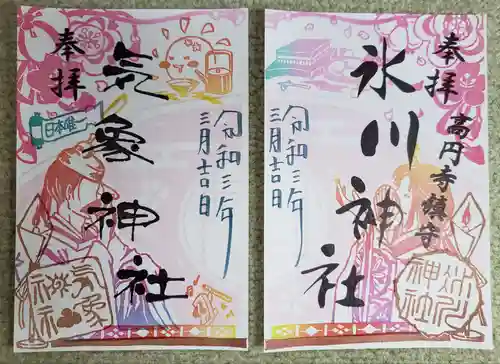 奉拝
気象神社
日本唯一
令和三年
三月吉日
気象神社
奉拝
氷川神社
高円寺鎮守
令和三年
三月吉日
氷川神社